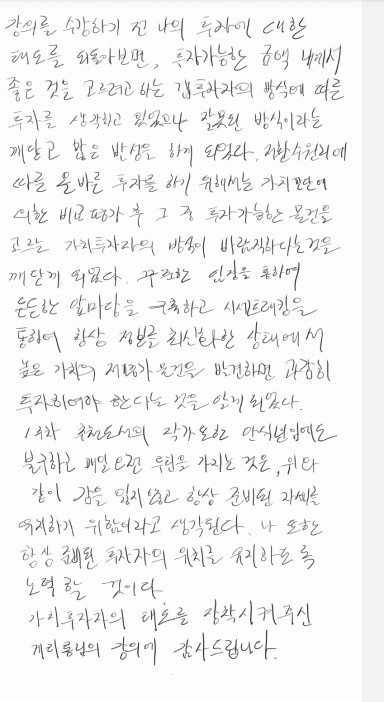 강의를 수강하기 전 나의 투자에 대한
태도를 되돌아보면, 투자가능한 금액 내에서
좋은 것을 고르려고 하는 갭투자자의 방식에 따른
투자를 생각하고 있었으나 잘못된 방식이라는
깨닫고 많은 반성을 하게 되었다. 저환수원리에
따를 올바른 투자를 하기 위해서는 가치판단에
의한 비교평가 후 그 중 투자가능한 물건을
고르는 가치투자자의 방식이 바람직하다는 것을
깨닫게 되었다. 꾸준한 임장을 통하여
든든한 앞마당을 구축하고 시세트레킹을
통하여 항상 정보를 최신화한 상태에서
높은 가치의 저평가 물건을 발견하면 과감히
투자하여야 한다는 것을 알게 되었다.
1주차 추천도서의 작가 또한 안식년임에도
불구하고 매일 오전 루틴을 가지는 것은, 위와
같이 감을 잃지 않고 항상 준비된 자세를
유지하기 위함이라고 생각된다. 나 또한
항상 준비된 투자자의 위치를 유지하도록
노력할 것이다
가치투자자의 태도를 장착시켜주신
게리롱님의 강의에 감사드립니다.